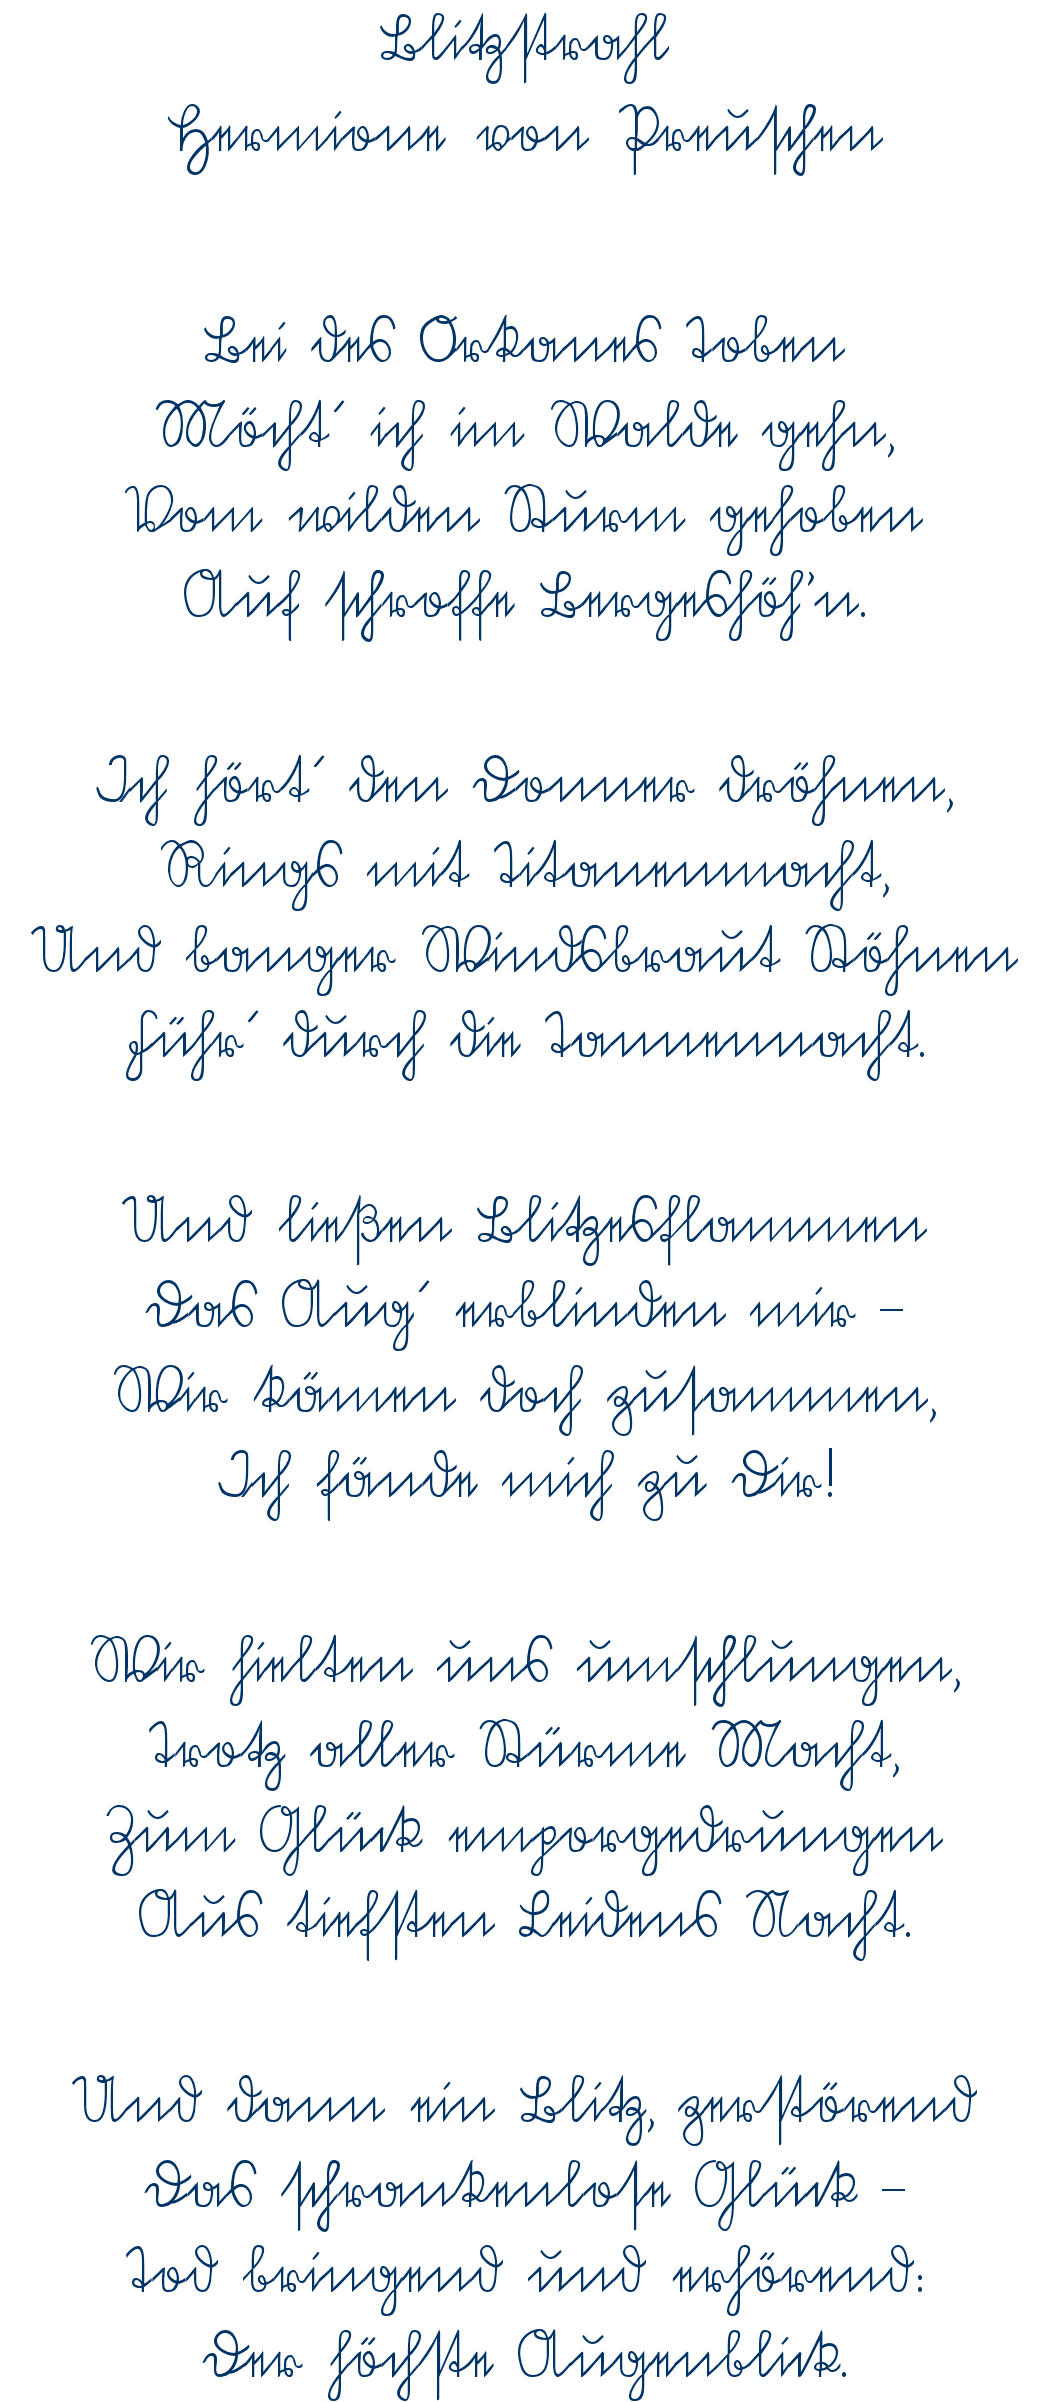 Blitzstrahl
Hermione von Preuschen
Bei des Orkanes Toben
Möcht´ ich im Walde gehn,
Vom wilden Sturm gehoben
Auf schroffe Bergeshöh'n.
Ich hört´ den Donner dröhnen,
Rings mit Titanenmacht,
Und banger Windsbraut Stöhnen
Führ´ durch die Tannennacht.
Und ließen Blitzesflammen
Das Aug´ erblinden mir –
Wir kämen doch zusammen,
Ich fände mich zu Dir!
Wir hielten uns umschlungen,
Trotz aller Stürme Macht,
Zum Glück emporgedrungen
Aus tiefsten Leidens Nacht.
Und dann ein Blitz, zerstörend
Das schrankenlose Glück –
Tod bringend und erhörend:
Der höchste Augenblick.